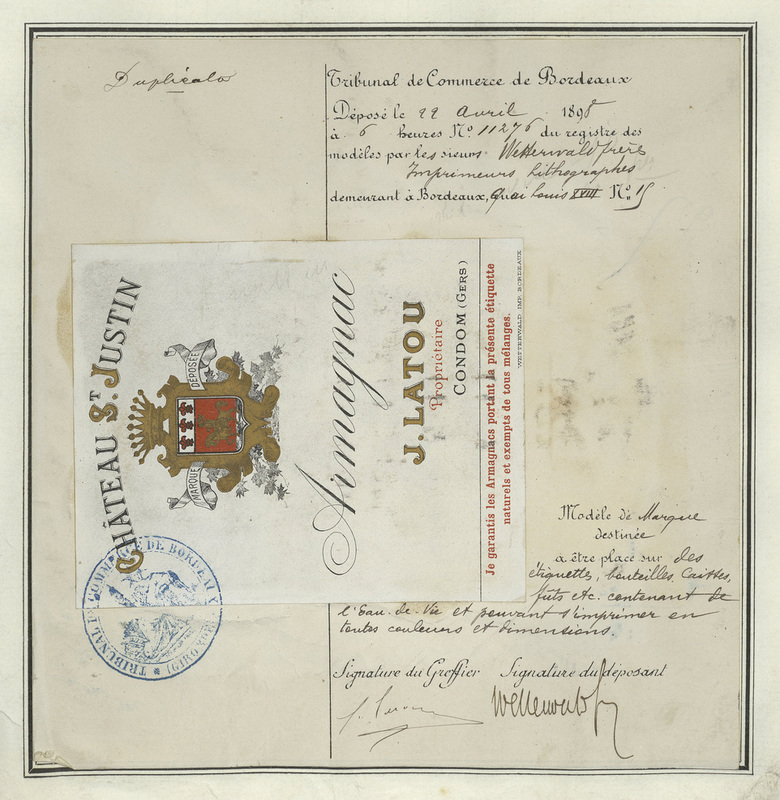 Duplicata
Tribunal de Commerce de Bordeaux
Déposé le 22 Avril 1898
à 6 heures No. 11276 du registre des
modèles par les sieurs Wetterwald frères
Imprimeurs Lithographes
demeurant à Bordeaux, Quai Louis XVIII No. 15
CHÂTEAU ST. JUSTIN
MARQUE DÉPOSÉE
Armagnac
J. LATOU
Propriétaire
CONDOM (GERS)
Je garantis les Armagnacs portant la présente étiquette
naturels et exempts de tous mélanges.
WETTERWALD IMP. BORDEAUX
TRIBUNAL DE COMMERCE DE BORDEAUX
Modèle de Marque
destinée
à être placé sur des
étiquettes, bouteilles, Caisses,
futs etc. contenant de
l'Eau-de-Vie et pouvant s'imprimer en
toutes couleurs et dimensions.
Signature du Greffier Signature du déposant
Wetterwald